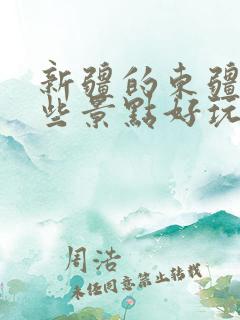 新疆的东疆
些景點好玩
周洁
未经同意禁止转载